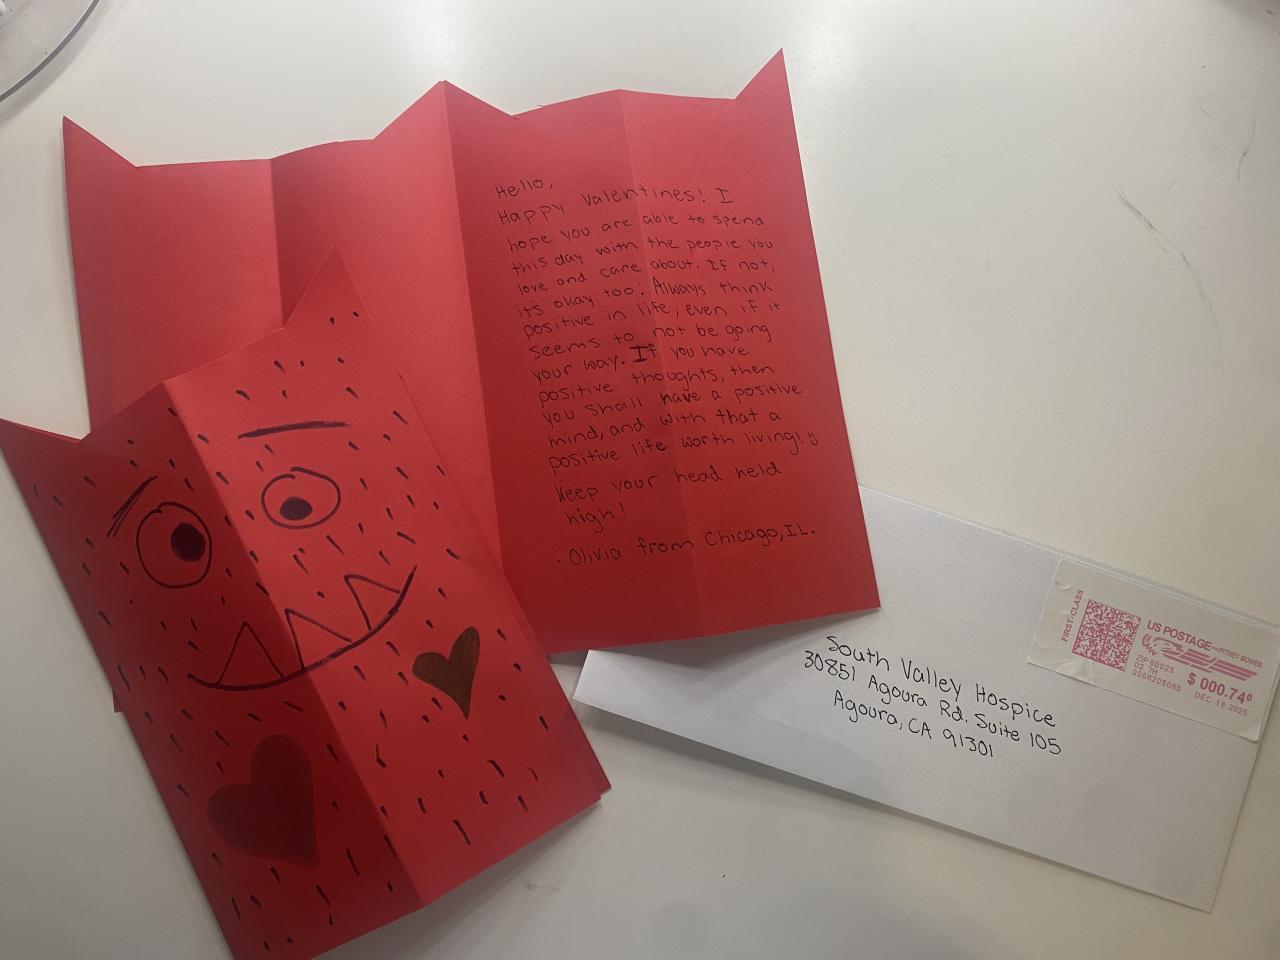 Hello,
Happy Valentines! I
hope you are able to spend
this day with the people you
love and care about. If not,
it's okay too! Always think
positive in life, even if it
seems to not be going
your way. If you have
positive thoughts, then
you shall have a positive
mind, and with that a
positive life worth living! :)
Keep your head held
high!
- Olivia from Chicago, IL.
South Valley Hospice
30851 Agoura Rd. Suite 105
Agoura, CA 91301
FIRST-CLASS
US POSTAGE PITNEY BOWES
ZIP 60025
02 7H
0006205080
$ 000.74⁰
DEC 16 2025